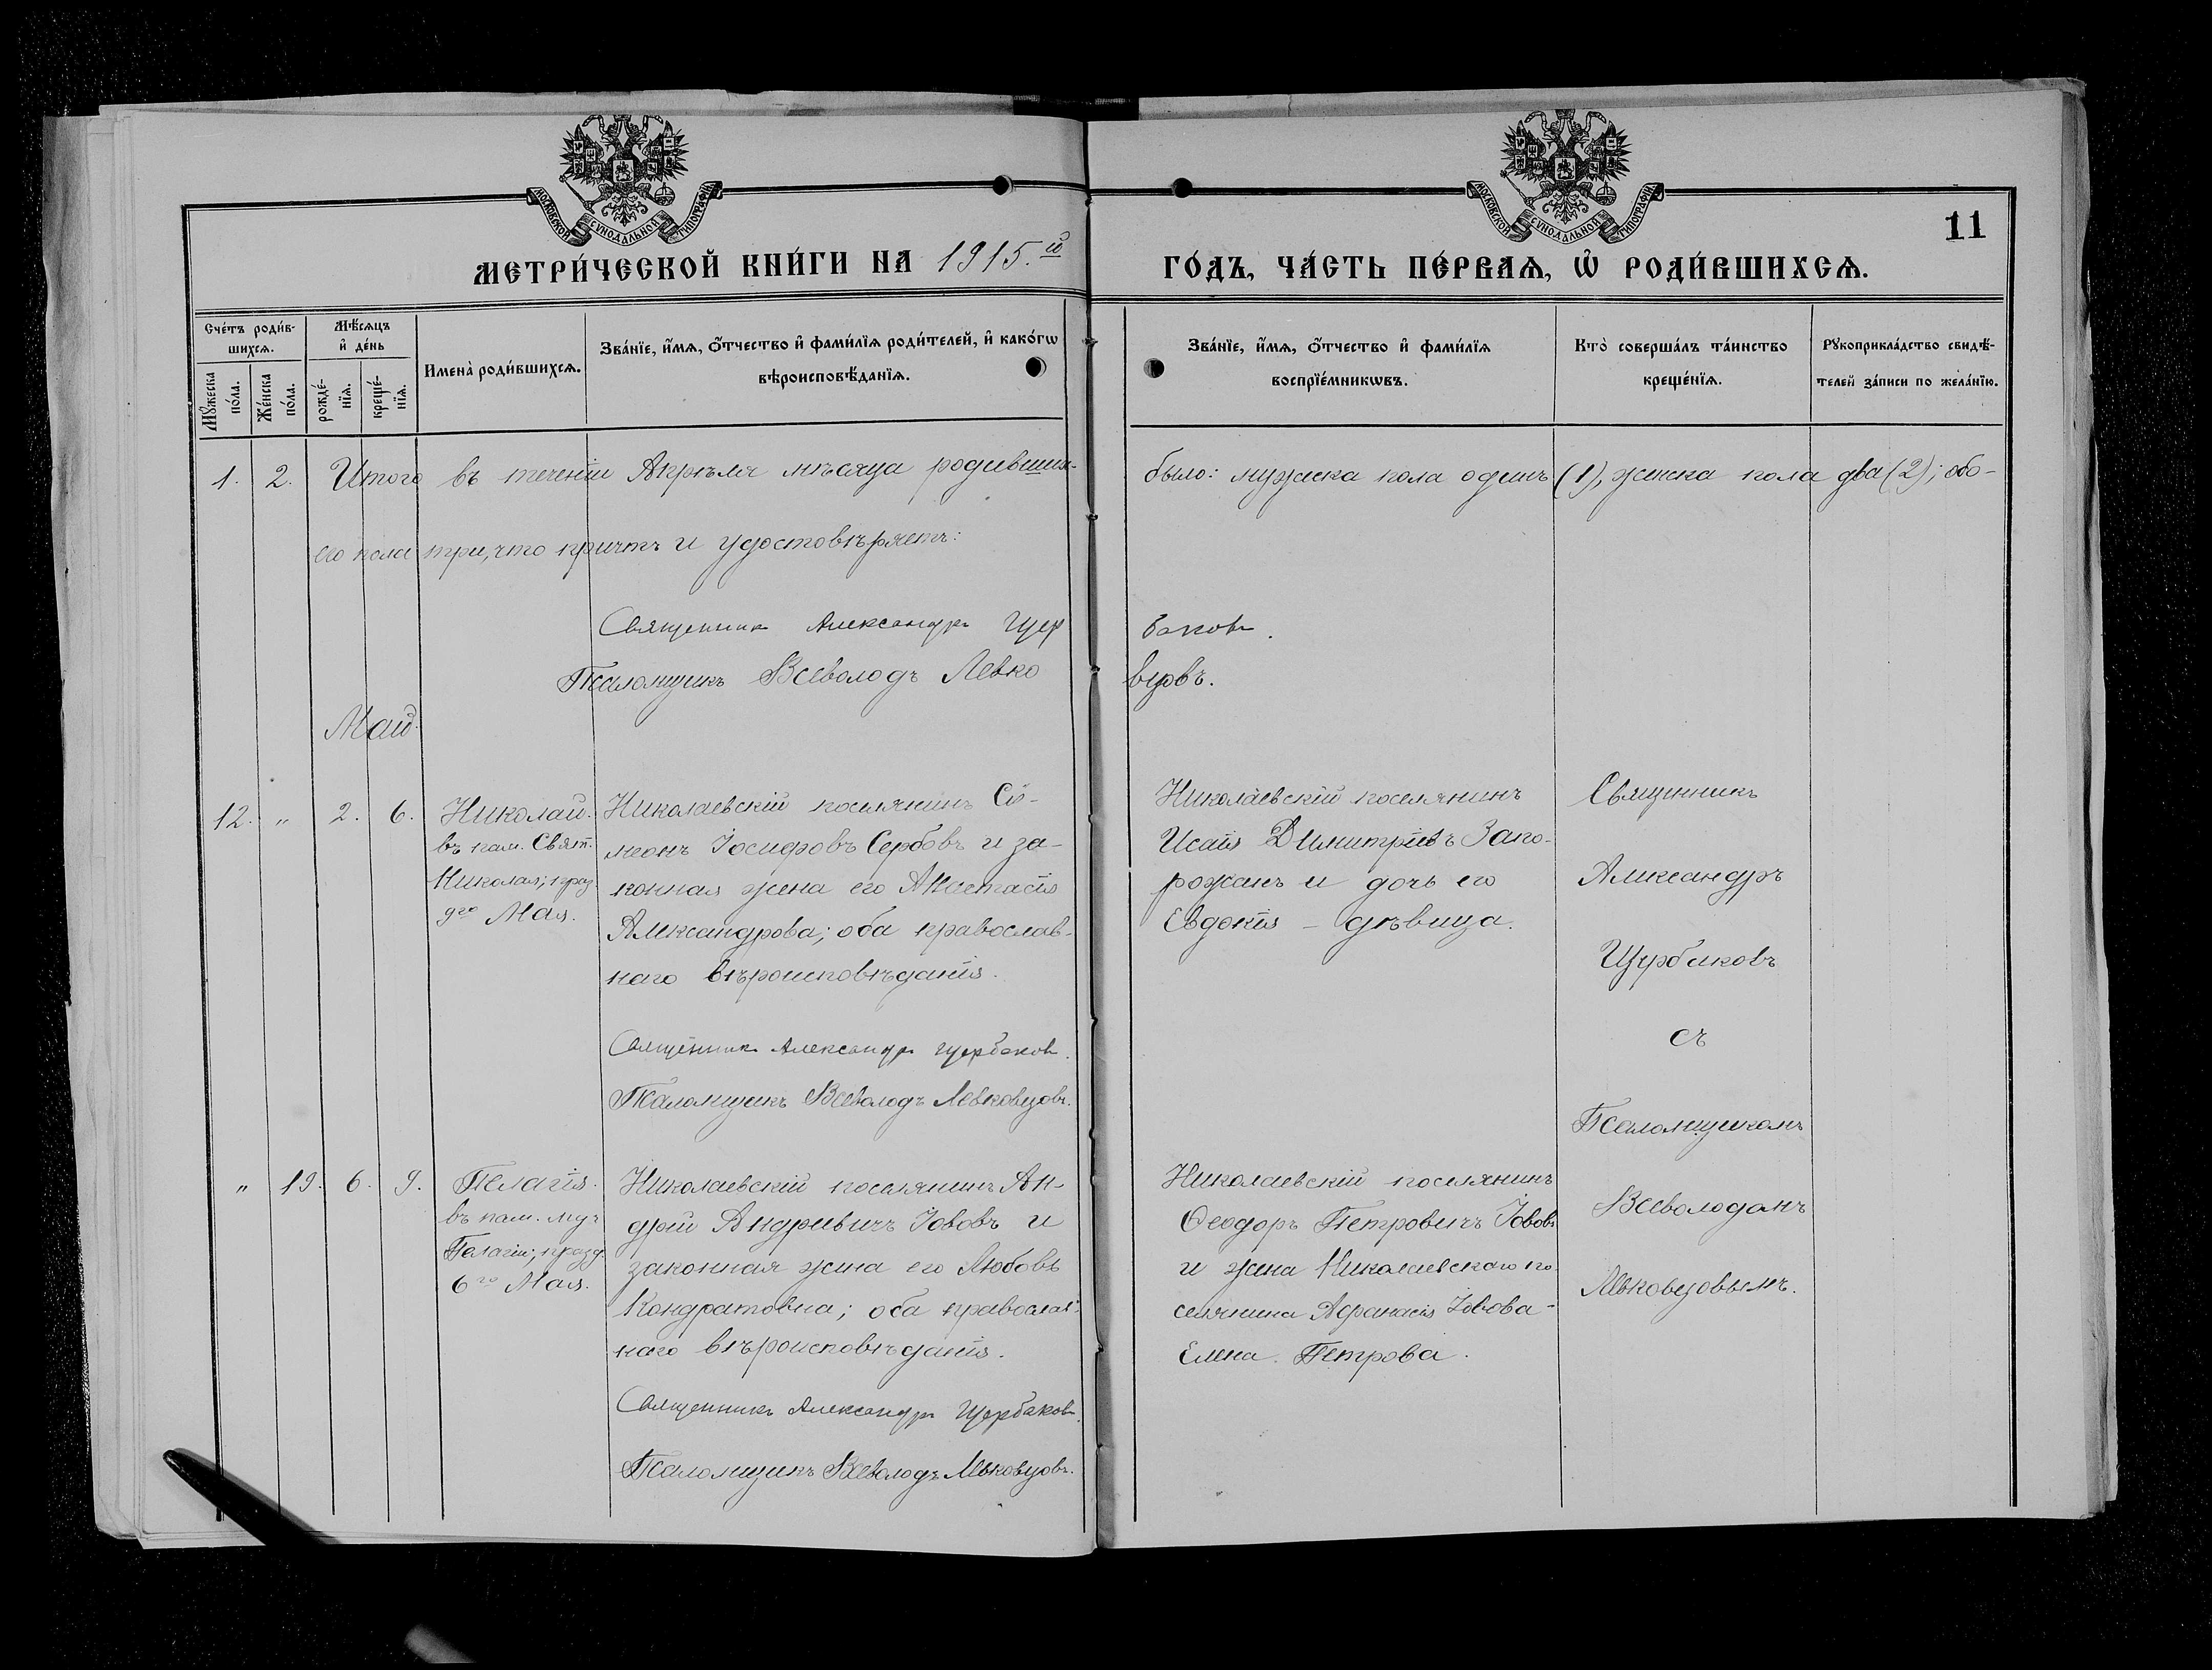 МОСКОВСКОЙ СѴНОДАЛЬНОЙ ТИПОГРАФІИ
МОСКОВСКОЙ СѴНОДАЛЬНОЙ ТИПОГРАФІИ
11
МЕТРИ́ЧЕСКОЙ КНИ́ГИ НА 1915.ій ГО́ДЪ, ЧА́СТЬ ПЕ́РВАѦ, Ѡ РОДИ́ВШИХСѦ.
Сче́тъ роди́в-
шихсѧ.
Мꙋ́жеска по́ла.
Же́нска по́ла.
Мѣ́сѧцъ
и҆ де́нь
рожде́-
нїѧ.
креще́-
нїѧ.
Имена̀ роди́вшихсѧ.
Зва́нїе, и҆́мѧ, ѻ҆́тчество и҆ фами́лїѧ роди́телей, и҆ како́гѡ
вѣроисповѣ́данїѧ.
Зва́нїе, и҆́мѧ, ѻ҆́тчество и҆ фами́лїѧ
воспрїе́мникѡвъ.
Кто̀ соверша́лъ та́инство
креще́нїѧ.
Рꙋкоприкла́дство свидѣ́-
телей за́писи по жела́нїю.
1. 2. Итого въ теченіи Апрѣлѣ мѣсяца родивших- было: мужеска пола одинъ (1), женска пола два (2); обо-
его пола три, что причтъ и удостовѣряетъ:
Священникъ Александръ Щер баковъ.
Псаломщикъ Всеволодъ Левко вцовъ.
Май.
12. " 2. 6. Николай.
въ пам. Свят.
Николая; праз.
9го Мая.
Николаевскій поселянинъ Си-
меонъ Іосифовъ Сербовъ и за-
конная жена его Анастасія
Александрова; оба православ-
наго вѣроисповѣданія.
Священникъ Александръ Щербаковъ.
Псаломщикъ Всеволодъ Левковцовъ.
Николаевскій поселянинъ
Исаія Димитріевъ Запо-
рожанъ и дочь его
Евдокія - дѣвица.
Священникъ
Александръ
Щербаковъ
съ
Псаломщикомъ
Всеволодомъ
Левковцовымъ.
" 19. 6. 9. Пелагія.
въ пам. муч.
Пелагіи; празд.
6го Мая.
Николаевскій поселянинъ Ан-
дрей Андреевичъ Іововъ и
законная жена его Любовь
Кондратовна; оба православ-
наго вѣроисповѣданія.
Священникъ Александръ Щербаковъ.
Псаломщикъ Всеволодъ Левковцовъ.
Николаевскій поселянинъ
Ѳеодоръ Петровичъ Іововъ
и жена Николаевскаго по-
селянина Афанасія Іовова -
Елена Петрова.